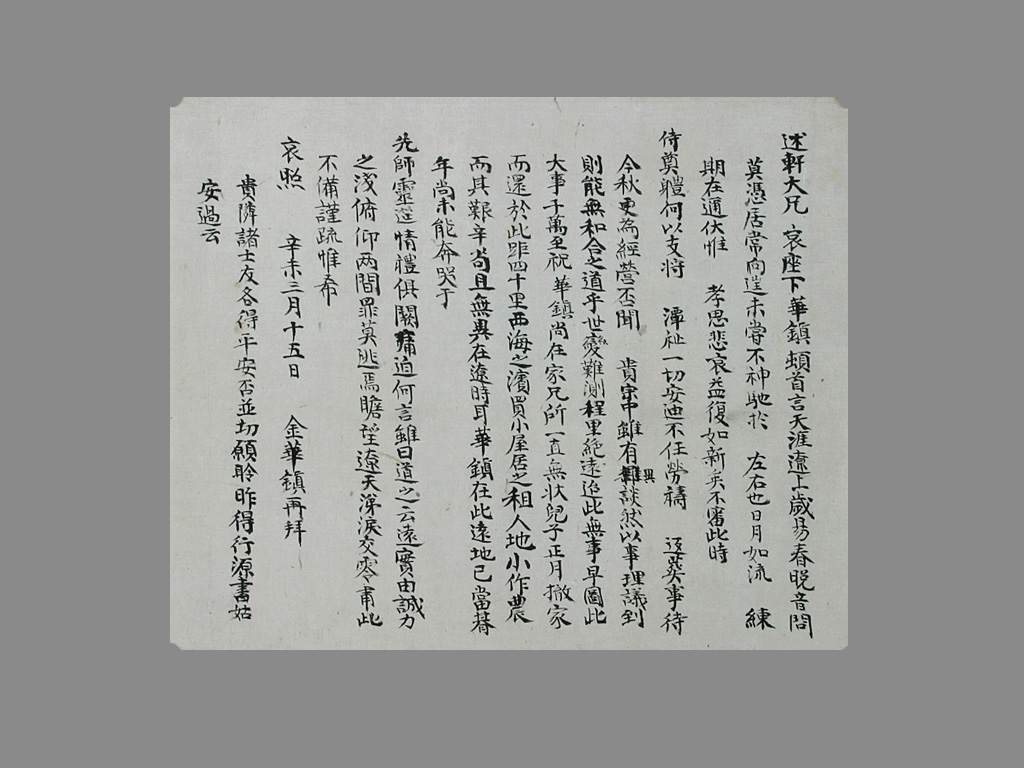 述軒大兄 哀座下華鎮頓首言天涯遼上歲易春晚音問
莫憑居常向 未嘗不神馳於 左右也日月如流 練
期在邇伏惟 孝思悲哀益復如新矣不審此時
侍奠體何以支將 潭祉一切安迪不任勞禱 返葬事待
今秋更為經營否聞 貴宗中雖有異談然以事理議到
則能無和合之道乎世變難測程里絕遠迨此無事早圖此
大事千萬至祝 華鎮尚在家兄所一直無狀兒子正月撤家
而還於此距四十里西海之濱買小屋居之租人地小作農
而其艱辛尚且無異在遼時耳華鎮在此遠地已當朞
年尚未能奔哭于
先師靈筵情禮俱闕痛迫何言雖曰道之云遠實由誠力
之淺俯仰兩間罪莫逃焉瞻望遼天涕淚交零甫此
不備謹疏惟希
哀照 辛未三月十五日 金華鎮再拜
貴隣諸士友各得平安否並切願聆昨得行源書姑
安過云